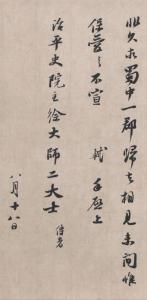 非久求蜀中一郡歸去相見未間惟
保愛之不宣　軾手啟上
治平史院主徐大師二大士侍者
八月十八日